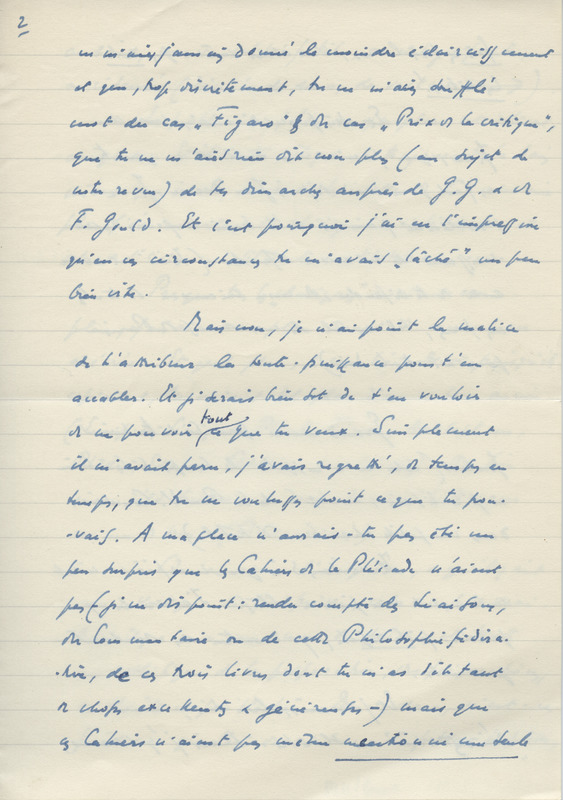 2
m'aies jamais donné le moindre éclaircissement
et que, trop discrètement, tu ne m'aies soufflé
mot du cas „Figaro" & du cas „Prix de la critique",
que tu ne m'aies rien dit non plus (au sujet de
notre revue) de tes démarches auprès de G.G. & de
F. Gould. Et c'est pourquoi j'ai eu l'impression
qu'en ces circonstances tu m'avais „lâché" un peu
bien vite.
Mais non, je n'ai point la malice
de t'attribuer la toute-puissance pour t'en
accabler. Et je serais bien sot de t'en vouloir
de ne pouvoir tout ce que tu veux. Simplement
il m'avait paru, j'avais regretté, de temps en
temps, que tu ne voulusses point ce que tu pou-
-vais. A ma place n'aurais-tu pas été un
peu surpris que les Cahiers de la Pléiade n'aient
pas (je ne dis point: rendu compte des Liaisons,
du Commentaire ou de cette Philosophie
de ces trois livres dont tu m'as dit tant
de choses excellentes & généreuses -) mais que
ces Cahiers n'aient pas même mentionné une seule